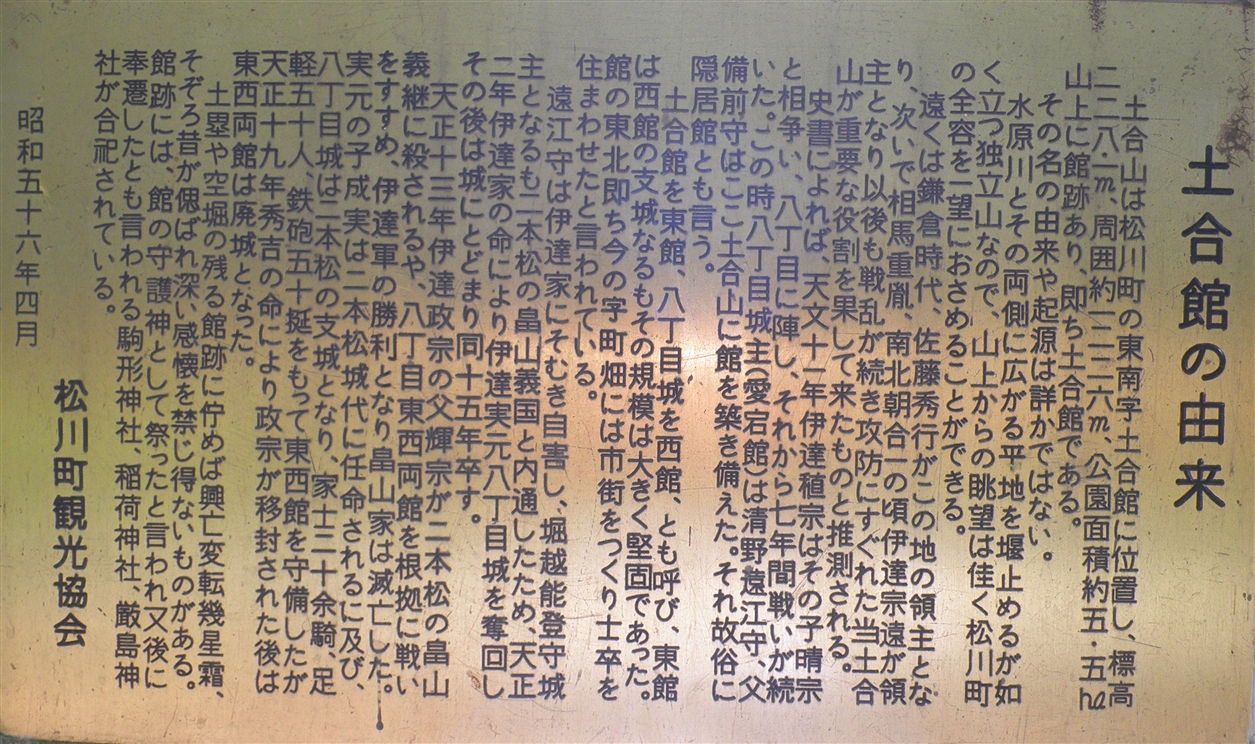 土合館の由来
土合山は松川町の東南字土合館に位置し、標高
二二八・一m、周囲約一二二六m、公園面積約五・五ha
山上に館跡あり、即ち土合館である。
その名の由来や起源は詳かではない。
水原川とその両側に広がる平地を堰止めるが如
く立つ独立山なので、山上からの眺望は佳く松川町
の全容を一望におさめることができる。
遠くは鎌倉時代、佐藤秀行がこの地の領主とな
り、次いで相馬重胤、南北朝合一の頃伊達宗遠が領
主となり以後も戦乱が続き攻防にすぐれた当土合
山が重要な役割を果して来たものと推測される。
史書によれば、天文十一年伊達稙宗はその子晴宗
と相争い、八丁目に陣し、それから七年間戦いが続
いた。この時八丁目城主(愛宕館)は清野遠江守、父
備前守はここ土合山に館を築き備えた。それ故俗に
隠居館とも言う。
土合館を東館、八丁目城を西館、とも呼び、東館
は西館の支城なるもその規模は大きく堅固であった。
館の東北即ち今の字町畑には市街をつくり士卒を
住まわせたと言われている。
遠江守は伊達家にそむき自害し、堀越能登守城
主となるも二本松の畠山義国と内通したため、天正
二年伊達家の命により伊達実元八丁目城を奪回し
その後は城にとどまり同十五年卒す。
天正十三年伊達政宗の父輝宗が二本松の畠山
義継に殺されるや、八丁目東西両館を根拠に戦い
をすすめ、伊達軍の勝利となり畠山家は滅亡した。
実元の子成実は二本松城代に任命されるに及び、
八丁目城は二本松の支城となり、家士二十余騎、足
軽五十人、鉄砲五十挺をもって東西館を守備したが
天正十九年秀吉の命により政宗が移封された後は
東西両館は廃城となった。
土塁や空堀の残る館跡に佇めば興亡変転幾星霜、
そぞろ昔が偲ばれ深い感懐を禁じ得ないものがある。
館跡には、館の守護神として祭ったと言われ又後に
奉遷したとも言われる駒形神社、稲荷神社、厳島神
社が合祀されている。
昭和五十六年四月
松川町観光協会